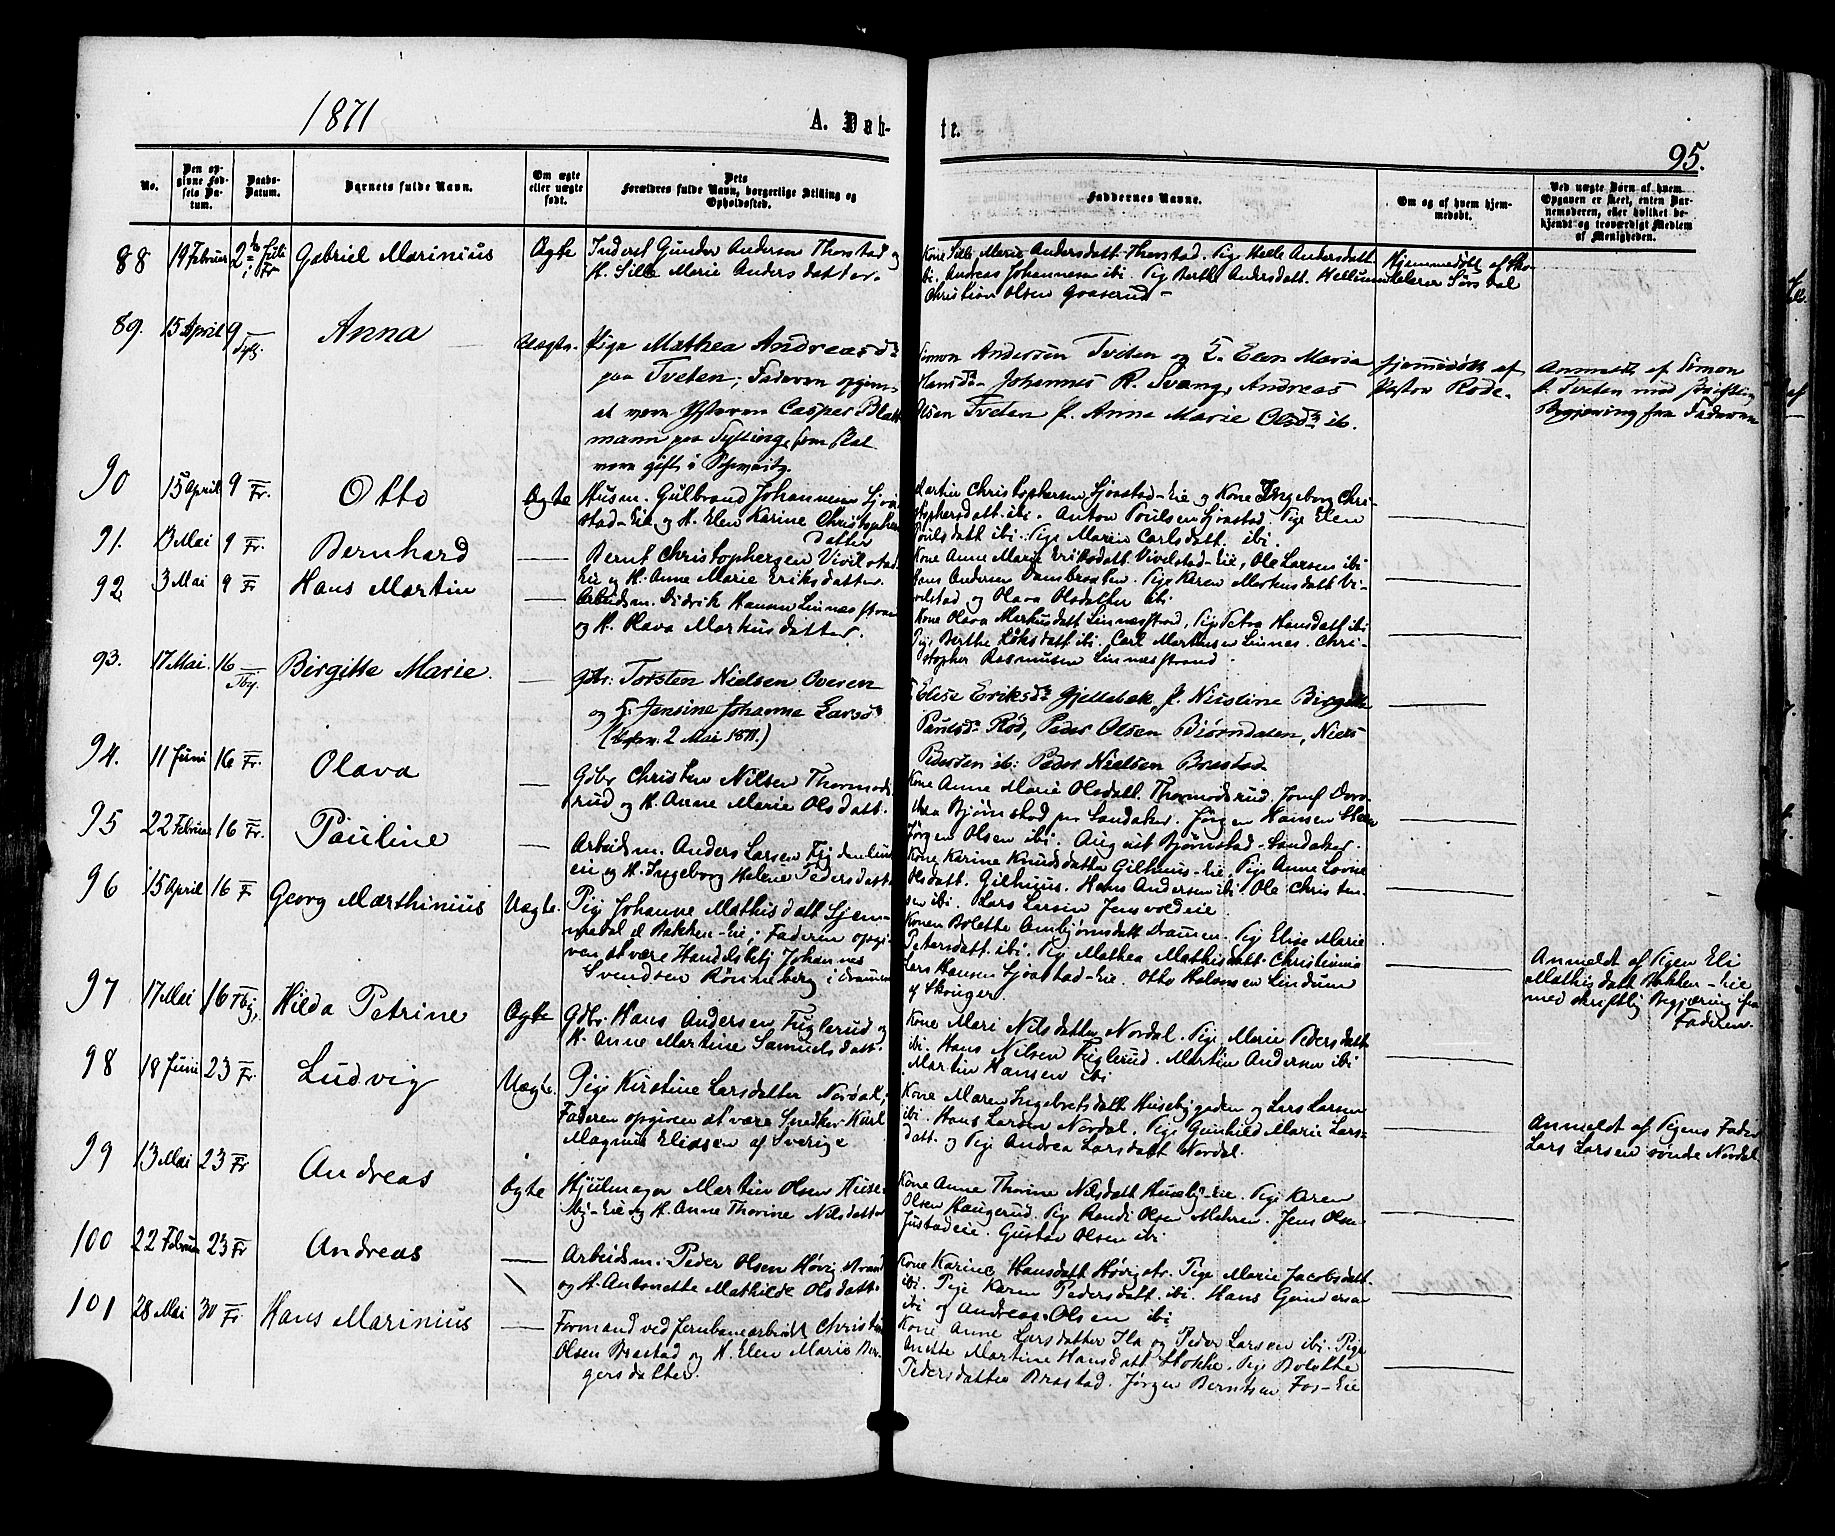 1871
A. Døb-
te.
95.
No.
Den op-
givne Fød-
sels Da-
tum.
Daabs-
Datum.
Barnets fulde Navn.
Om ægte
eller uægte
født.
Dets
Forældres fulde Navn, borgerlige Stilling og
Opholdssted.
Faddernes Navne.
Om og af hvem hjem-
medøbt.
Ved uægte Børn af hvem
Opgaven er skeet, enten Bar-
nemoderen, eller hvilket be-
kjendt og troværdigt Medlem
af Menigheden.
88
19 Februar
Fr
Gabriel Marinius
Ægte
Gunder Andersen Thorstad og
H. Sille Marie Andersdatter.
Kone Sille Marie Andersdatt. Thorstad. Pige Helle Andersdatt.
ibi. Andreas Johannesen ibi. Pige Berthe Andersdatt. Hellum
Christian Olsen Graaserud
Hjemmedøbt af Sko-
lelærer
89.
15 April
9
Sylt.
Anna
Uægte.
Pige Mathea Andreasdr
paa Tveten; Faderen opgives
at være Casper Blatt
mann paa Sylling, som skal
være gift i Schweitz.
Simon Andersen Tveten og H. Elen Maria
Hansdr Johannes R. Svang, Andreas
Olsen Tveten P. Anna Marie Olsdr ib.
Hjemmedøbt af
Pastor Rode.
Anmeldt af Simon
A. Tveten med skriftlig
Begjering fra Faderen
90
15 April
9 Fr.
Otto
Ægte
Husm. Gulbrand Johannesen Sjøa-
stad-Eie og H. Elen Karine Christophers
datter
Martin Christophersen Sjøastad-Eie og Kone Ingeborg Chri-
stophersdatt. ibi. Anton Poulsen Sjøastad. Pige Elen
Poulsdatt ibi. Pige Maren Carlsdatt. ibi.
91.
13 Mai
9 Fr.
Bernhard
Bernt Christophersen Vivelstad
Eie og H. Anne Marie Eriksdatter.
Kone Anne Marie Eriksdatt Vivelstad-Eie, Ole Larsen ibi
Hans Andersen Dambraaten. Pige Karen Markusdatt Vi-
velstad og Olava Olsdatter ibi
92
3 Mai
9 Fr
Hans Martin
Arbeidsm. Didrik Hansen Linnesstrand
og H. Olava Markusdatter.
Kone Olava Markusdatt Linnesstrand, Pige Petra Hansdatt ibi
Pige Berthe datt ibi, Carl Marthinsen Linnes. Chri-
stopher Rasmusen Linnesstrand
93.
17 Mai.
16
Tbj.
Birgitte Marie.
gbr: Torsten Nielsen Overen
og H. Jensine Johanna Larsdr
2 Mai 1871.)
Elise Eriksdr Gjellebæk, P. Nicoline Birgitte
Paulsdr Rød, Peder Olsen Bjørndalen, Niels
Pedersen ib: Peder Nielsen Brastad
94.
11 Juni
16 Fr.
Olava
Gdbr Christen Nilsen Thormods
rud og H. Anne Marie Olsdatt.
Kone Anne Marie Olsdatt. Thormodsrud. Josef Doro-
thea Bjørnstad paa Landaker. Jørgen Hansen
Jørgen Olsen ibi. August Bjørnstad-Landaker.
95
22 Februar
16 Fr.
Pauline
Arbeidsm. Anders Larsen
eie og H. Ingeborg Helene Pedersdatt
Kone Karine Knudsdatter Gilhuus-Eie, Pige Anne Lovise
Olsdatt. Gilhuus. Hans Andersen ibi. Ole Christen-
sen ibi. Lars Larsen Jensvoldeie
96
15 April
16 F
Georg Marthinius
Uægte.
Pige Johanne Mathisdatt Ljem-
medal el Bakken-Eie; Faderen opgi-
ven at være Handelsbetj Johannes
Svendsen Rønneberg i Drammen
Konen Bolette Ambjørnsdatt Dramen. Pige Elise Marie
Petersdatt. ibi. Pige Mathea Mathisdatt. Christiania
Lars Hansen Sjøastad-Eie. Otto Halvorsen Lindum
af Skouger.
Anmeldt af Pigen Eli
Mathisdatt Bakken-Eie
med skriftlig Begjæring fra
Faderen.
97
17 Mai
16 Tbj,
Hilda Petrine
Ægte
Gdbr. Hans Andersen Fuglerud og
H. Anne Martine Samuelsdatt.
Kone Mari Nilsdatter Nordal. Pige Marie Pedersdatt
ibi. Hans Nilsen Fuglerud. Martin Andersen ibi
Martin Hansen ibi
98
18 Juni
23 Fr.
Ludvig
Uægte.
Pige Kirstine Larsdatter Nordal,
Faderen opgiven at være Snedker Karl
Magnus Eliasen af Sverige
Kone Maren Ingebretsdatt Husebygaden og Lars Larsen
ibi. Hans Larsen Nordal. Pige Gunhild Marie Lars-
datt. og Pige Andrea Larsdatt Nordal.
Anmeldt af Pigens Fader
Lars Larsen søndre Nordal
99
13 Mai
23 Fr
Andreas
Ægte
Hjulmager Martin Olsen Huse-
by-Eie og H. Anne Thorine Nilsdatter
Kone Anne Thorine Nilsdatt Huseby-Eie. Pige Karen
Olsen Haugerud. Pige Randi Olsen Mehren. Jens Olsen
Justadeie. Gustav Olsen ibi
100
22 Februar
23 Fr
Andreas
Arbeidsm. Peder Olsen Høvigstrand
og H. Antonette Mathilde Olsdatt.
Kone Karine Hansdatt Høvigstr. Pige Marie Jacobsdatt.
ibi. Pige Karen Pedersdatt. ibi. Hans Gundersen
ibi og Andreas Olsen ibi
101
28 Mai
30 Fr.
Hans Marinius
Formand ved Jernbanearbeidet Christian
Olsen Brastad og H. Elen Marie Bør-
gersdatter.
Kone Anne Larsdatter Ila og Peder Larsen ibi. Pige
Anette Martine Hansdatt Stokke. Pige Bolette
Pedersdatter Brastad. Jørgen Berntsen Fos-Eie